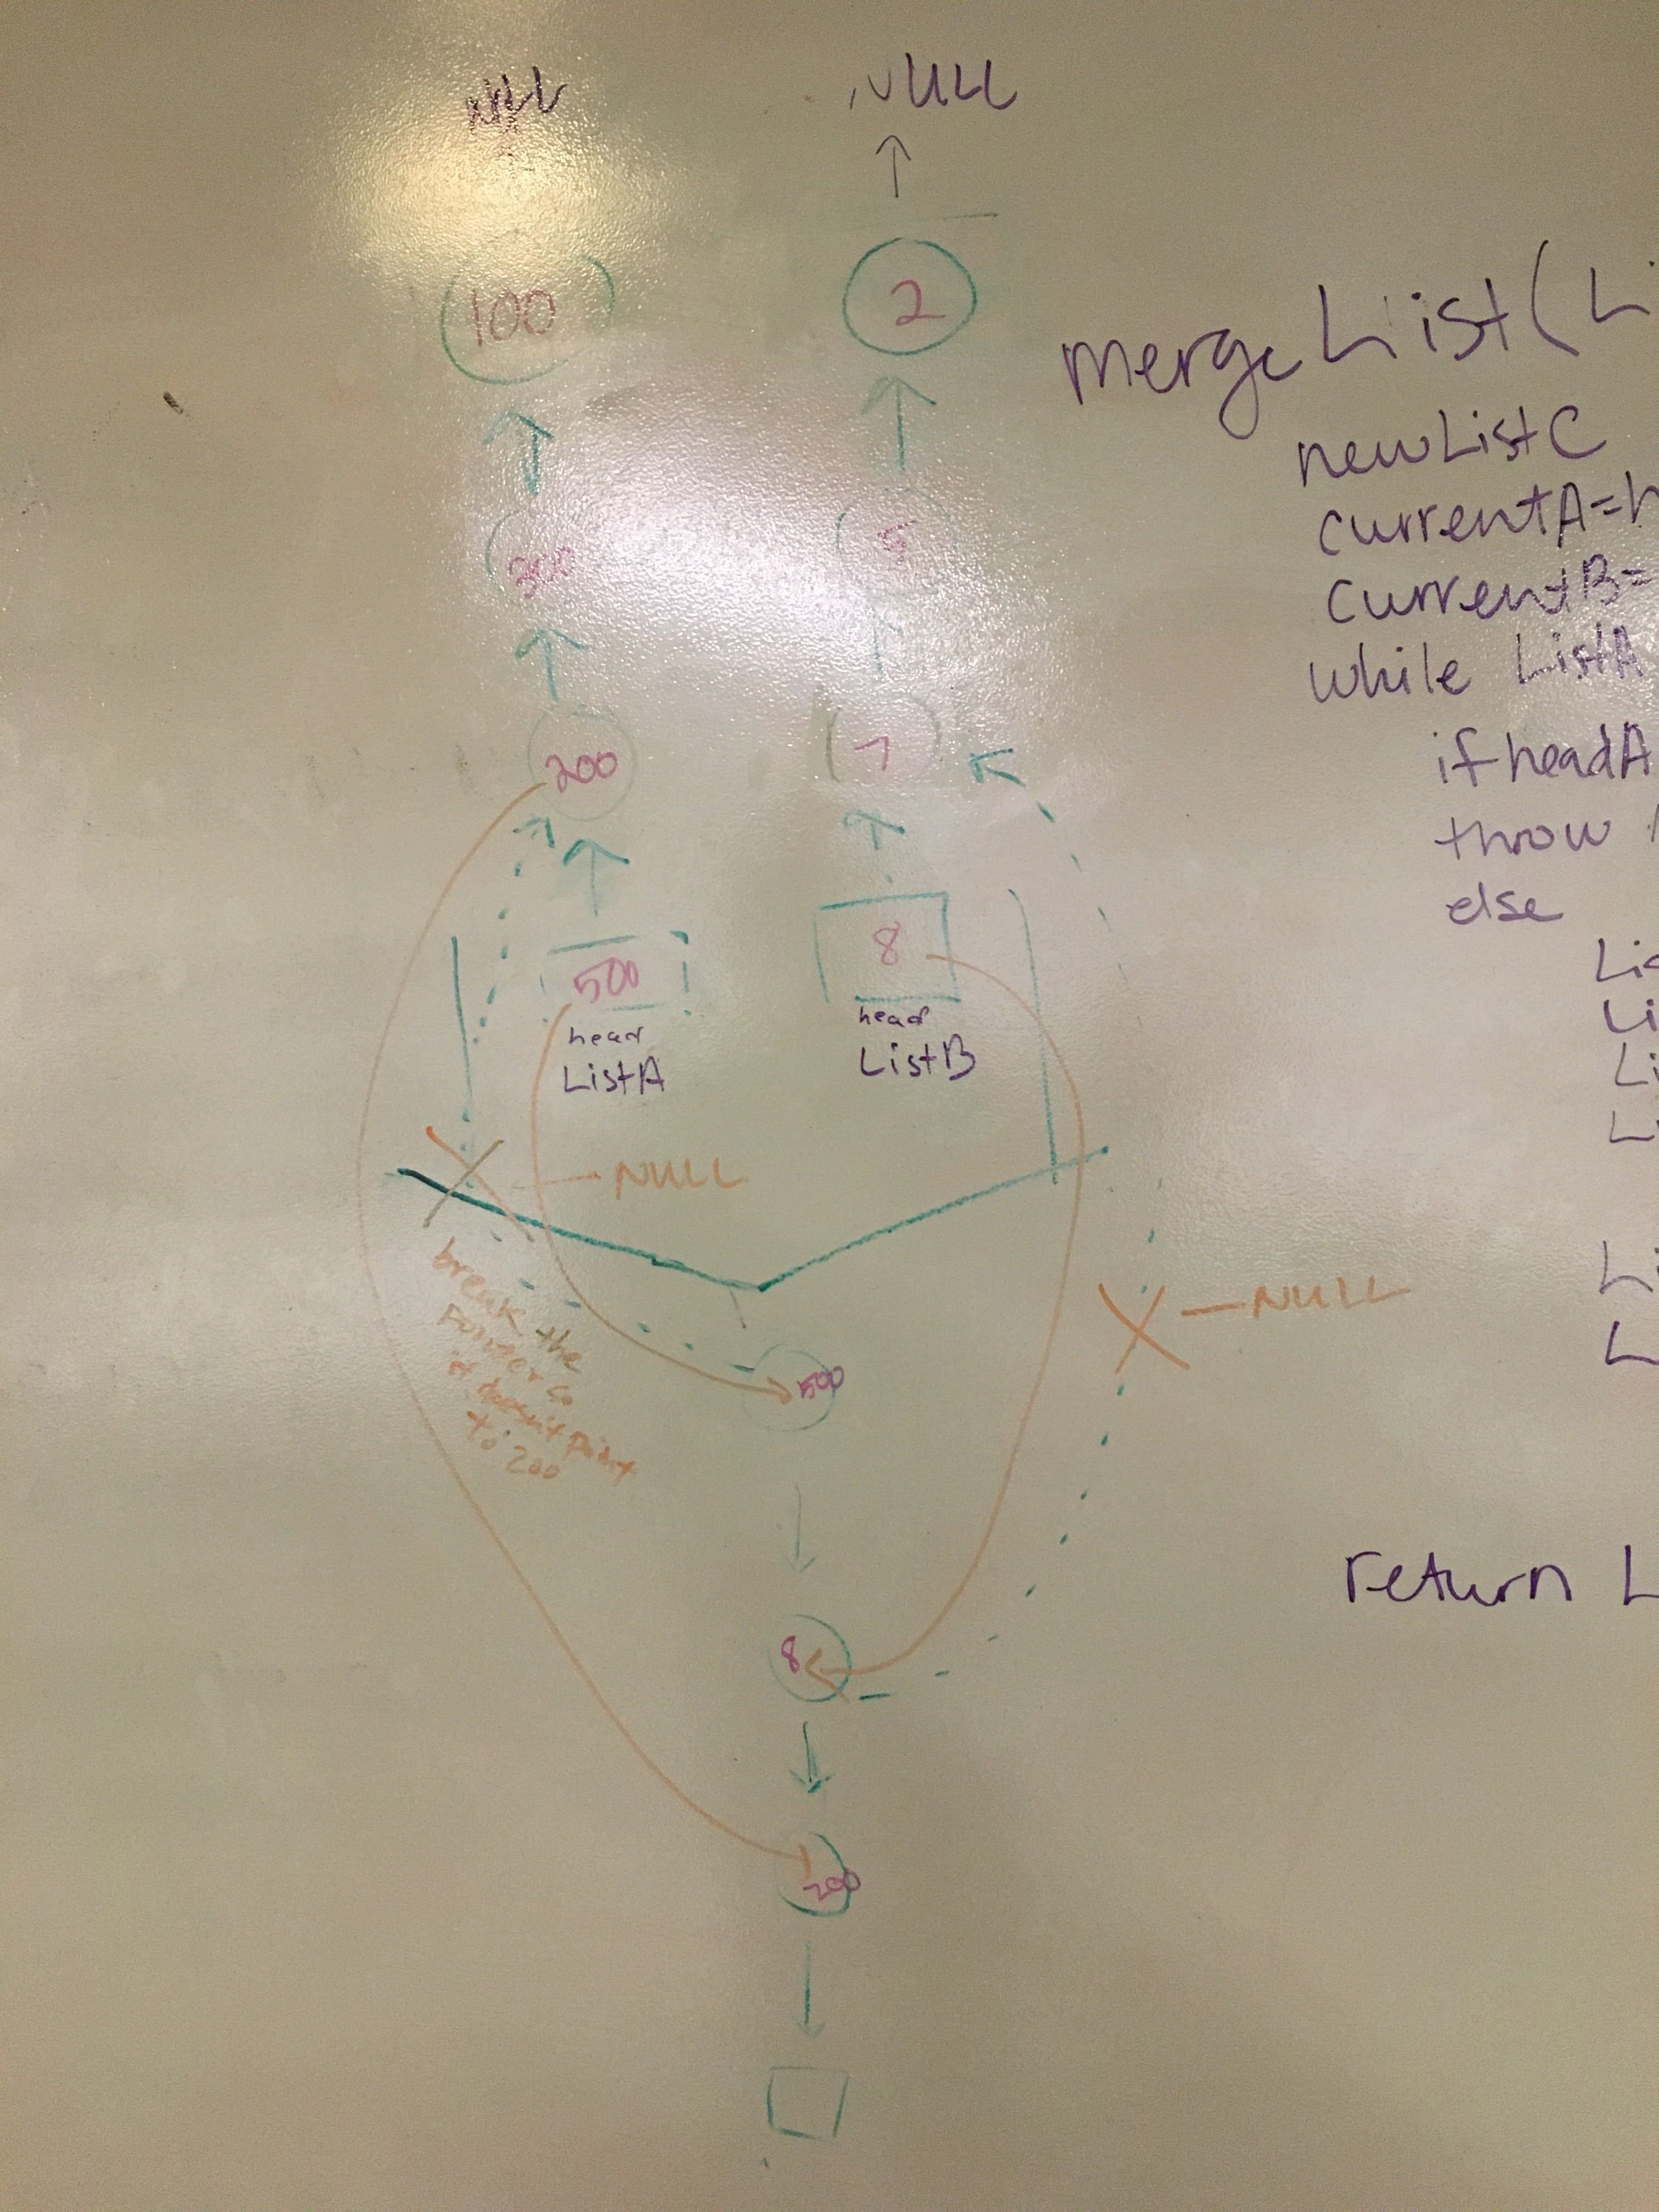 NULL
NULL
100
2
300
5
200
7
500
8
head
ListA
head
ListB
NULL
NULL
break the
pointer so
it doesn't point
to 200
500
8
200
mergeList(Li
newListC
currentA=h
currentB=
while ListA
if headA
throw
else
Lis
Li
Li
Li
Li
L
return L